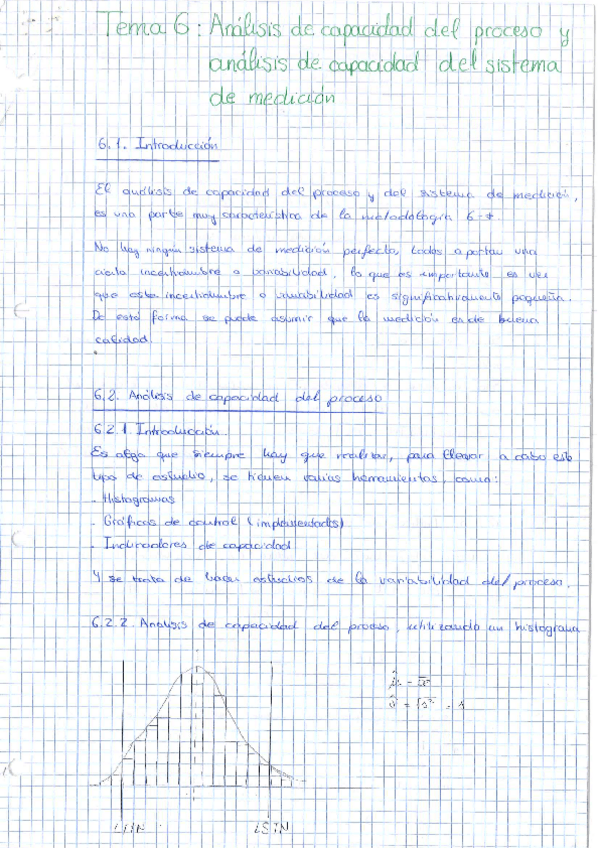 Tema 6: Análisis de capacidad del proceso y
análisis de capacidad del sistema
de medición
6.1. Introducción
El análisis de capacidad del proceso y del sistema de medición,
es una parte muy característica de la metodología 6-
No hay ningún sistema de medición perfecto, todos aportan una
cierta incertidumbre o variabilidad, lo que es importante es ver
que esta incertidumbre o variabilidad es significativamente pequeña.
De esta forma se puede asumir que la medición es de buena
calidad.
6.2. Análisis de capacidad del proceso
6.2.1 Introducción.
Es algo que siempre hay que realizar, para llevar a cabo este
tipo de estudio, se tienen varias herramientas, como:
- Histogramas
- Gráficos de control (implementados)
- Indicadores de capacidad
Y se trata de hacer estudios de la variabilidad del proceso.
6.2.2. Analisis de capacidad del proceso, utilizando un histograma